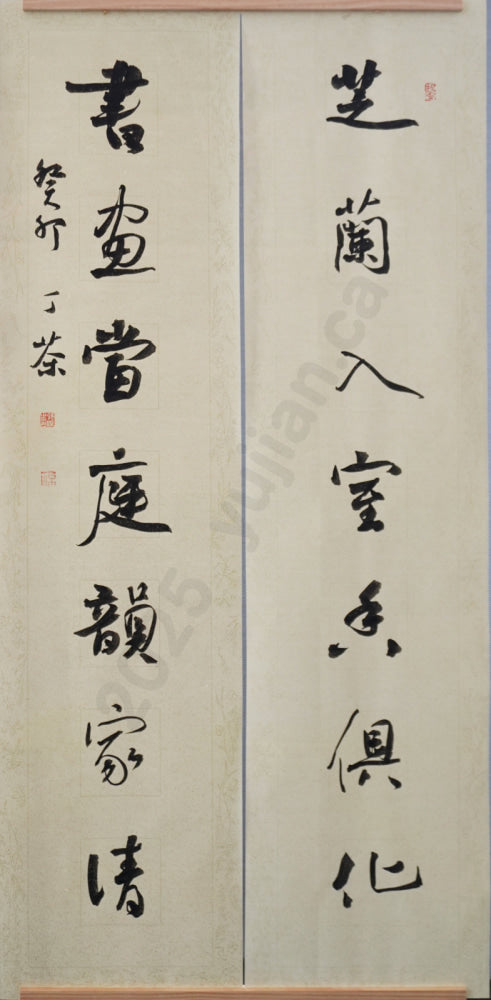 芝蘭入室香俱化
書画當庭韻家清
癸卯 丁茶
2025 yujian.ca